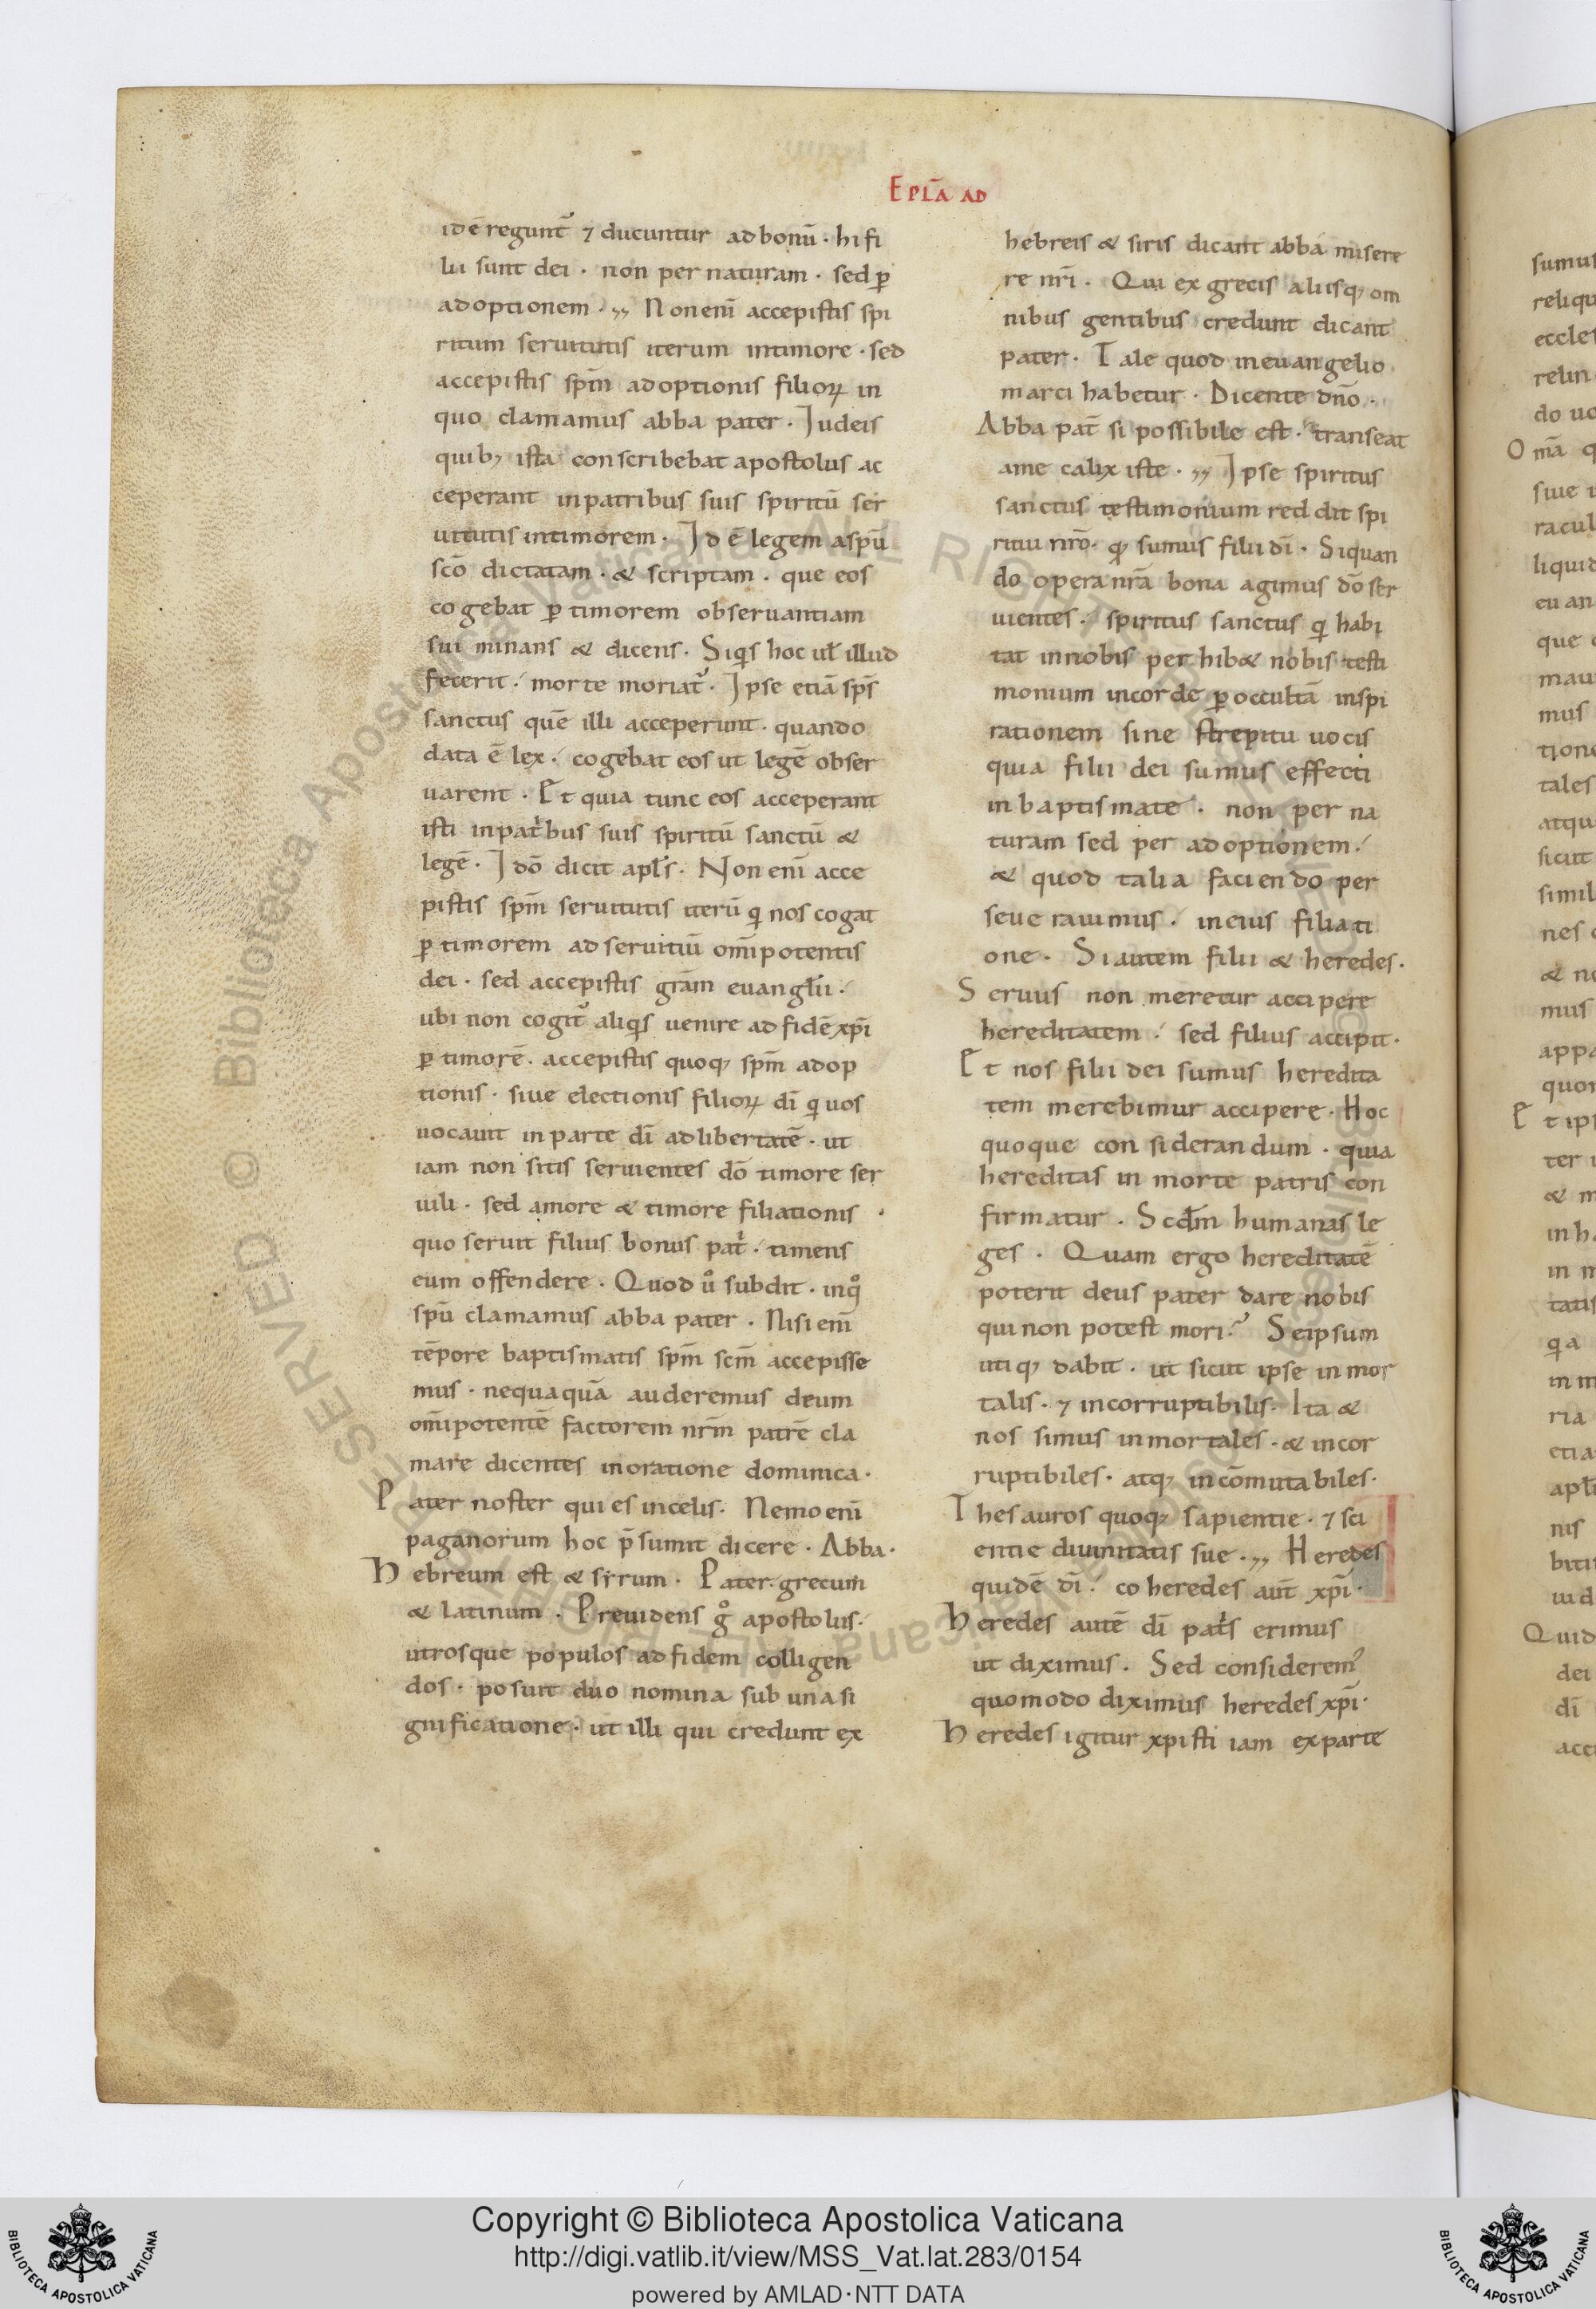 EPLA͞ AD
idē regunt᷑ ⁊ ducuntur ad bonū · hi fi
lii sunt dei · non per naturam · sed ꝑ
adoptionem · Non eni͞ accepistis spi
ritum seruitutis iterum in timore · sed
accepistis spm͞ adoptionis filioꝝ in
quo clamamus abba pater · Iudeis
quibꝫ ista conscribebat apostolus ac
ceperant in patribus suis spiritū ser
uitutis in timorem · Id ē legem a spū
scō dictatam · & scriptam · que eos
cogebat ꝑ timorem obseruantiam
sui minans & dicens · Siqis hoc ul̄ illud
fecerit · morte moriat᷑ · Ipse etiā sps͞
sanctus quē illi acceperunt · quando
data ē lex · cogebat eos ut legē obser
uarent · Et quia tunc eos acceperant
isti in pat͛bus suis spiritū sanctū &
legē · Idō dicit apls͞ · Non eni͞ acce
pistis spm͞ seruitutis iterū qi nos cogat
ꝑ timorem ad seruitiū om͞ipotentis
dei · sed accepistis gr͞am euanglii͞ ·
ubi non cogit᷑ aliqis uenire ad fidē xpi͞
ꝑ timorē · accepistis quoqꝫ spm͞ adop
tionis · siue electionis filioꝝ di͞ qi uos
uocauit in parte di͞ ad libertatē · ut
iam non sitis seruientes dō timore ser
uili · sed amore & timore filiationis ·
quo seruit filius bonus pat͛ · timens
eum offendere · Quod uͦ subdit · in qͦ
spū clamamus abba pater · Nisi eni͞
tēpore baptismatis spm͞ scm͞ accepisse
mus · nequaquā auderemus deum
om͞ipotentē factorem nrm͞ patrē cla
mare dicentes in oratione dominica ·
Pater noster qui es in celis · Nemo eni͞
paganorum hoc p̄sumit dicere · Abba ·
Hebreum est & syrum · Pater grecum
& latinum · Preuidens gͦ apostolus
utrosque populos ad fidem colligen
dos · posuit duo nomina sub una si
gnificatione · ut illi qui credunt ex
hebreis & siris dicant abba misere
re nri͞ · Qui ex grecis aliisqꝫ om
nibus gentibus credunt dicant
pater · Tale quod in euangelio
marci habetur · Dicente dn͞o ·
Abba pat͞ si possibile est · transeat
a me calix iste · Ipse spiritus
sanctus testimonium reddit spi
ritui nro͞ · qꝫ sumus filii di͞ · Siquan
do opera nra͞ bona agimus dō ser
uientes · spiritus sanctus qi habi
tat in nobis perhib& nobis testi
monium in corde ꝑ occultā inspi
rationem sine strepitu uocis
quia filii dei sumus effecti
in baptismate · non per na
turam sed per adoptionem ·
& quod talia faciendo per
seuerauimus · in eius filiati
one · Si autem filii & heredes ·
Seruus non meretur accipere
hereditatem · sed filius accipit ·
Et nos filii dei sumus heredita
tem merebimur accipere · Hoc
quoque considerandum · quia
hereditas in morte patris con
firmatur · Scdm͞ humanas le
ges · Quam ergo hereditatē
poterit deus pater dare nobis
qui non potest mori? Seipsum
utiqꝫ dabit · ut sicut ipse inmor
talis · ⁊ incorruptibilis · Ita &
nos simus inmortales · & incor
ruptibiles · atqꝫ incōmutabiles ·
Thesauros quoqꝫ sapientie · ⁊ sci
entie diuinitatis sue · Heredes
quidē di͞ · coheredes aut͞ xpi͞ ·
Heredes autē di͞ pat͛s erimus
ut diximus · Sed considerem᷒
quomodo diximus heredes xpi͞ ·
Heredes igitur xpisti iam ex parte
Copyright © Biblioteca Apostolica Vaticana
http://digi.vatlib.it/view/MSS_Vat.lat.283/0154
powered by AMLAD·NTT DATA